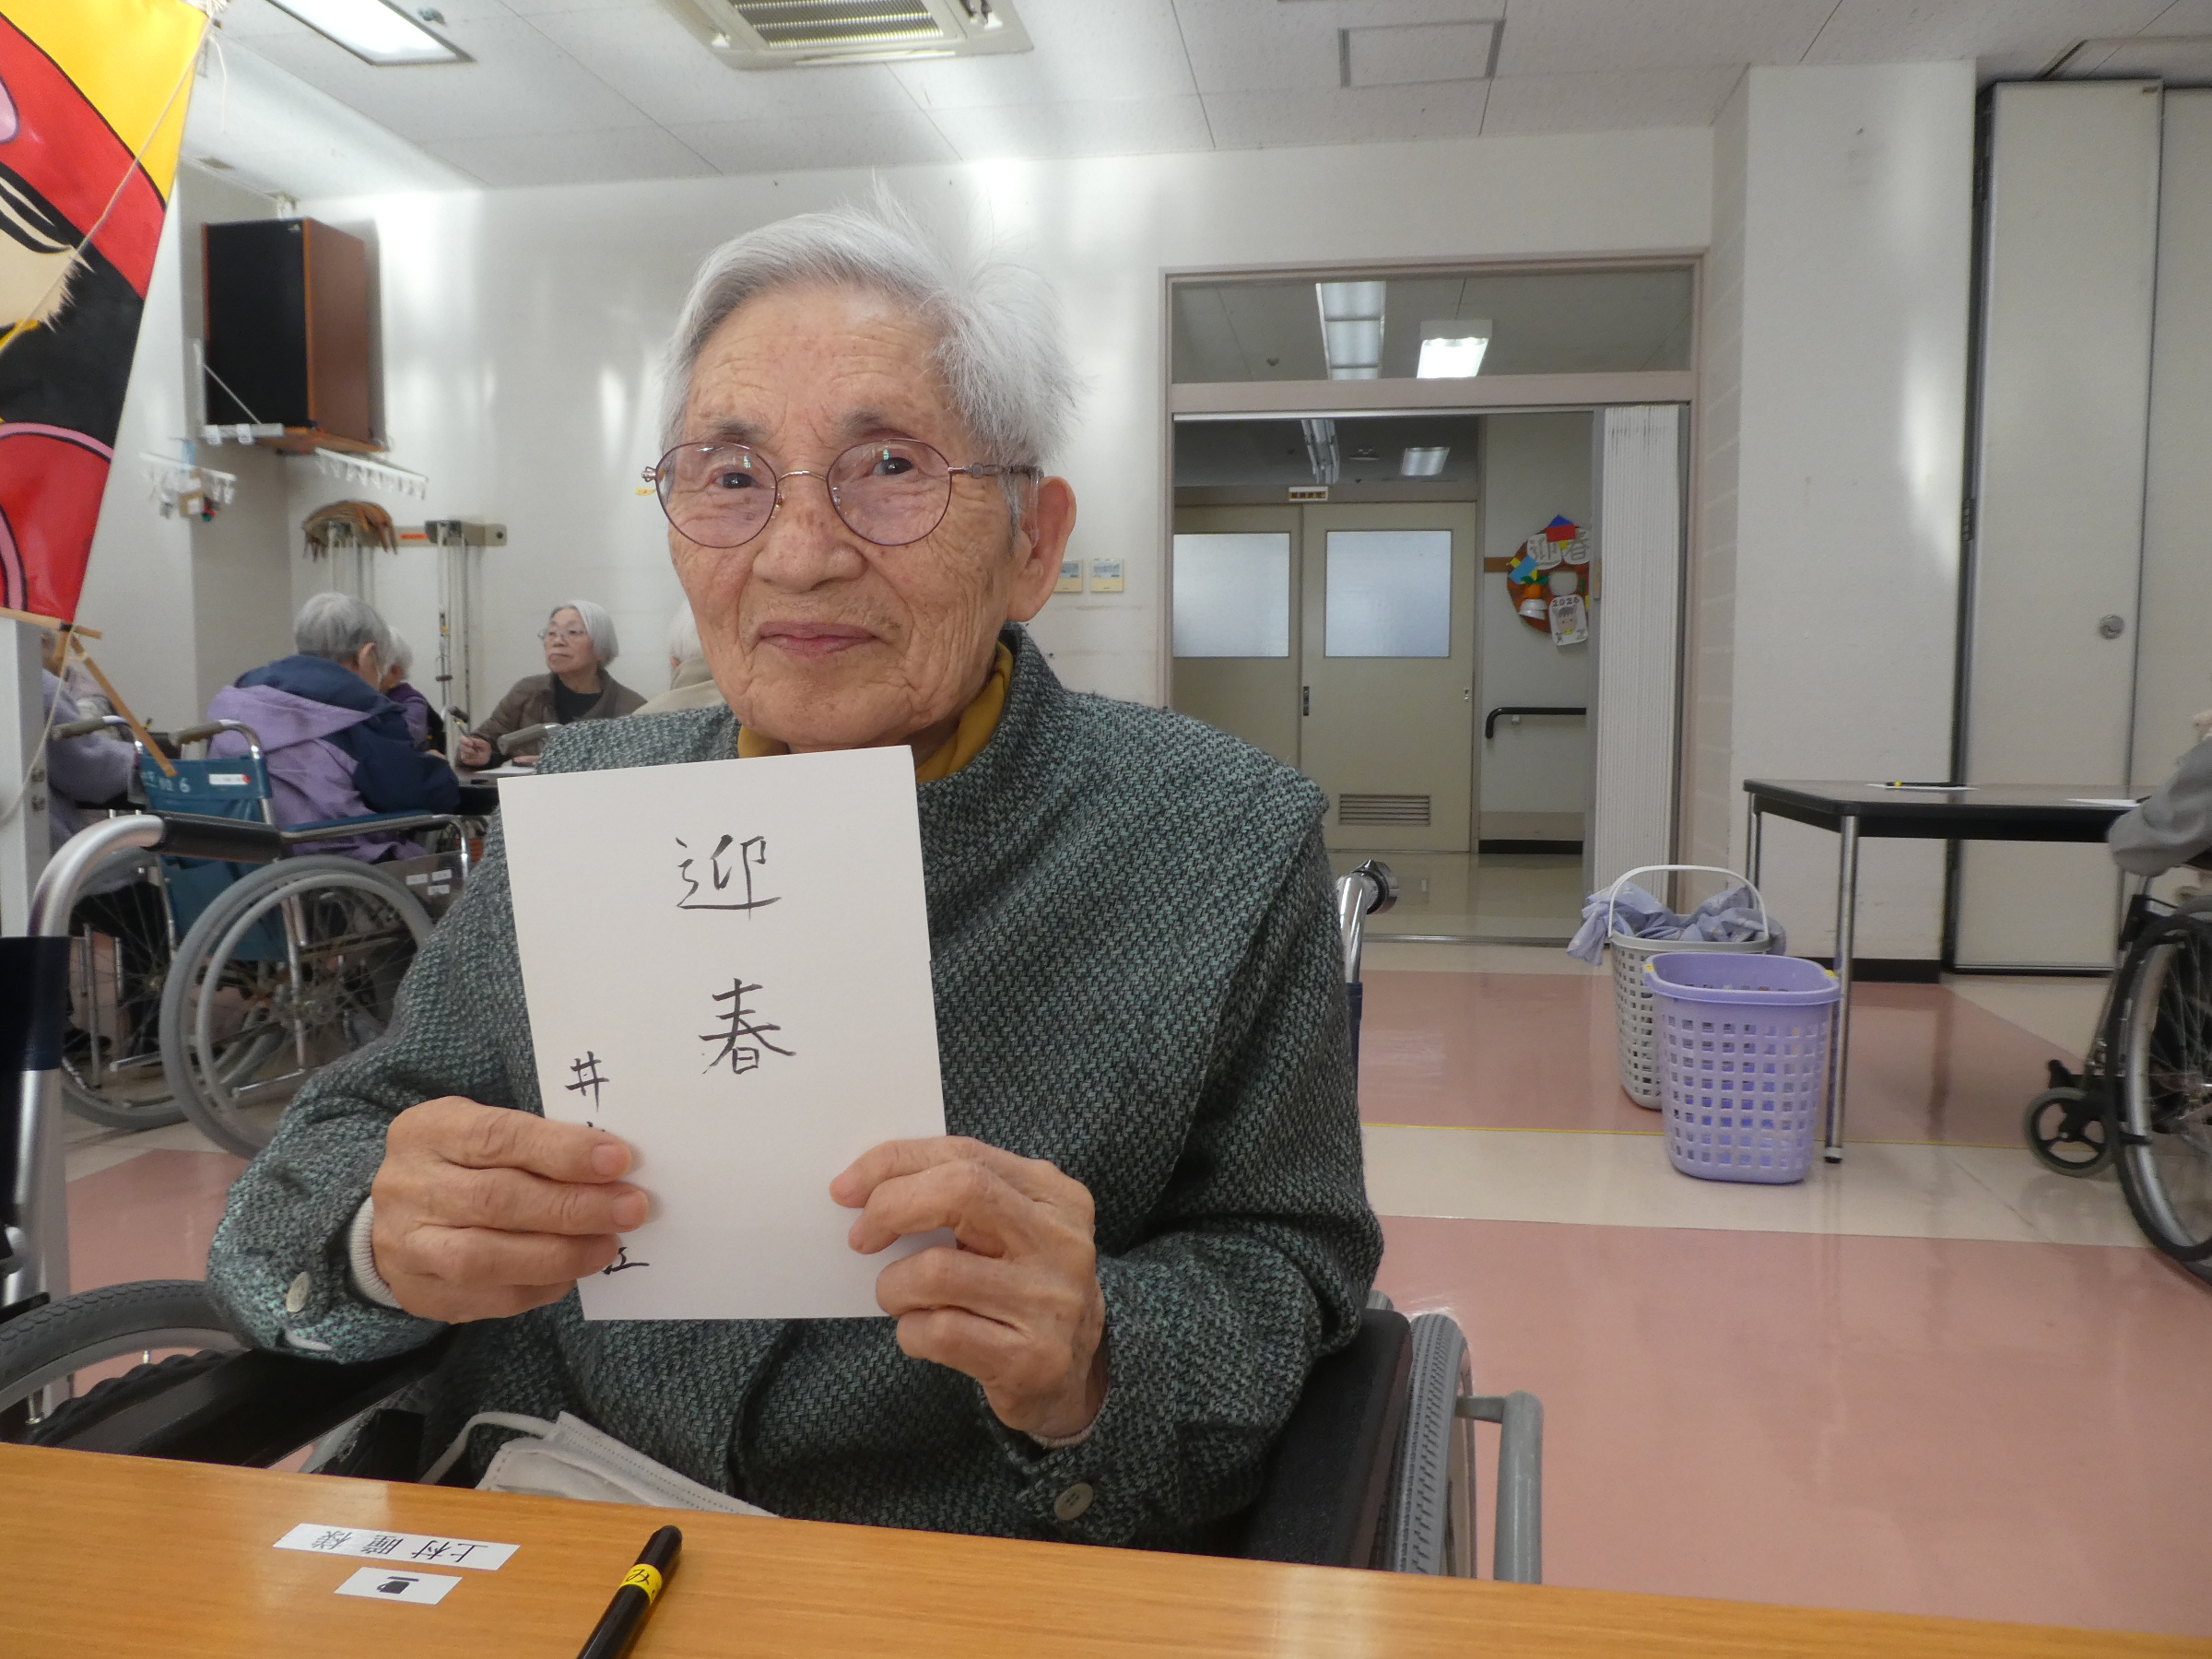 迎春
井
江
迎春
2026
上村 瞳 様
み
6